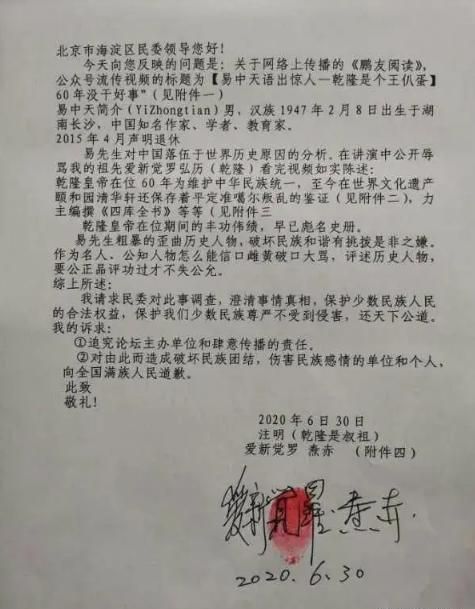 北京市海淀区民委领导您好!
今天向您反映的问题是：关于网络上传播的《鹏友阅读》，
公众号流传视频的标题为【易中天语出惊人—乾隆是个王仈蛋】
60年没干好事”（见附件一）
易中天简介（YiZhongtian）男，汉族1947年2月8日出生于湖
南长沙，中国知名作家、学者、教育家。
2015年4月声明退休
易先生对中国落伍于世界历史原因的分析。在讲演中公开辱
骂我的祖先爱新觉罗弘历（乾隆）看完视频如实陈述：
乾隆皇帝在位60年为维护中华民族统一，至今在世界文化遗产
颐和园清华轩还保存着平定准噶尔叛乱的鉴证（见附件二），力
主编撰《四库全书》等等（见附件三
乾隆皇帝在位期间的丰功伟绩，早已彪名史册。
易先生粗暴的歪曲历史人物，破坏民族和谐有挑拨是非之嫌。
作为名人。公知人物怎么能信口雌黄破口大骂，评述历史人物，
要公正品评功过才不失公允。
综上所述：
我请求民委对此事调查，澄清事情真相，保护少数民族人民
的合法权益，保护我们少数民族尊严不受到侵害，还天下公道。
我的诉求：
①追究论坛主办单位和肆意传播的责任。
②对由此而造成破坏民族团结，伤害民族感情的单位和个人，
向全国满族人民道歉。
此致
敬礼!
2020年6月30日
注明（乾隆是叔祖）
爱新觉罗 焘赤 （附件四）
爱新觉罗·焘赤.
2020.6.30